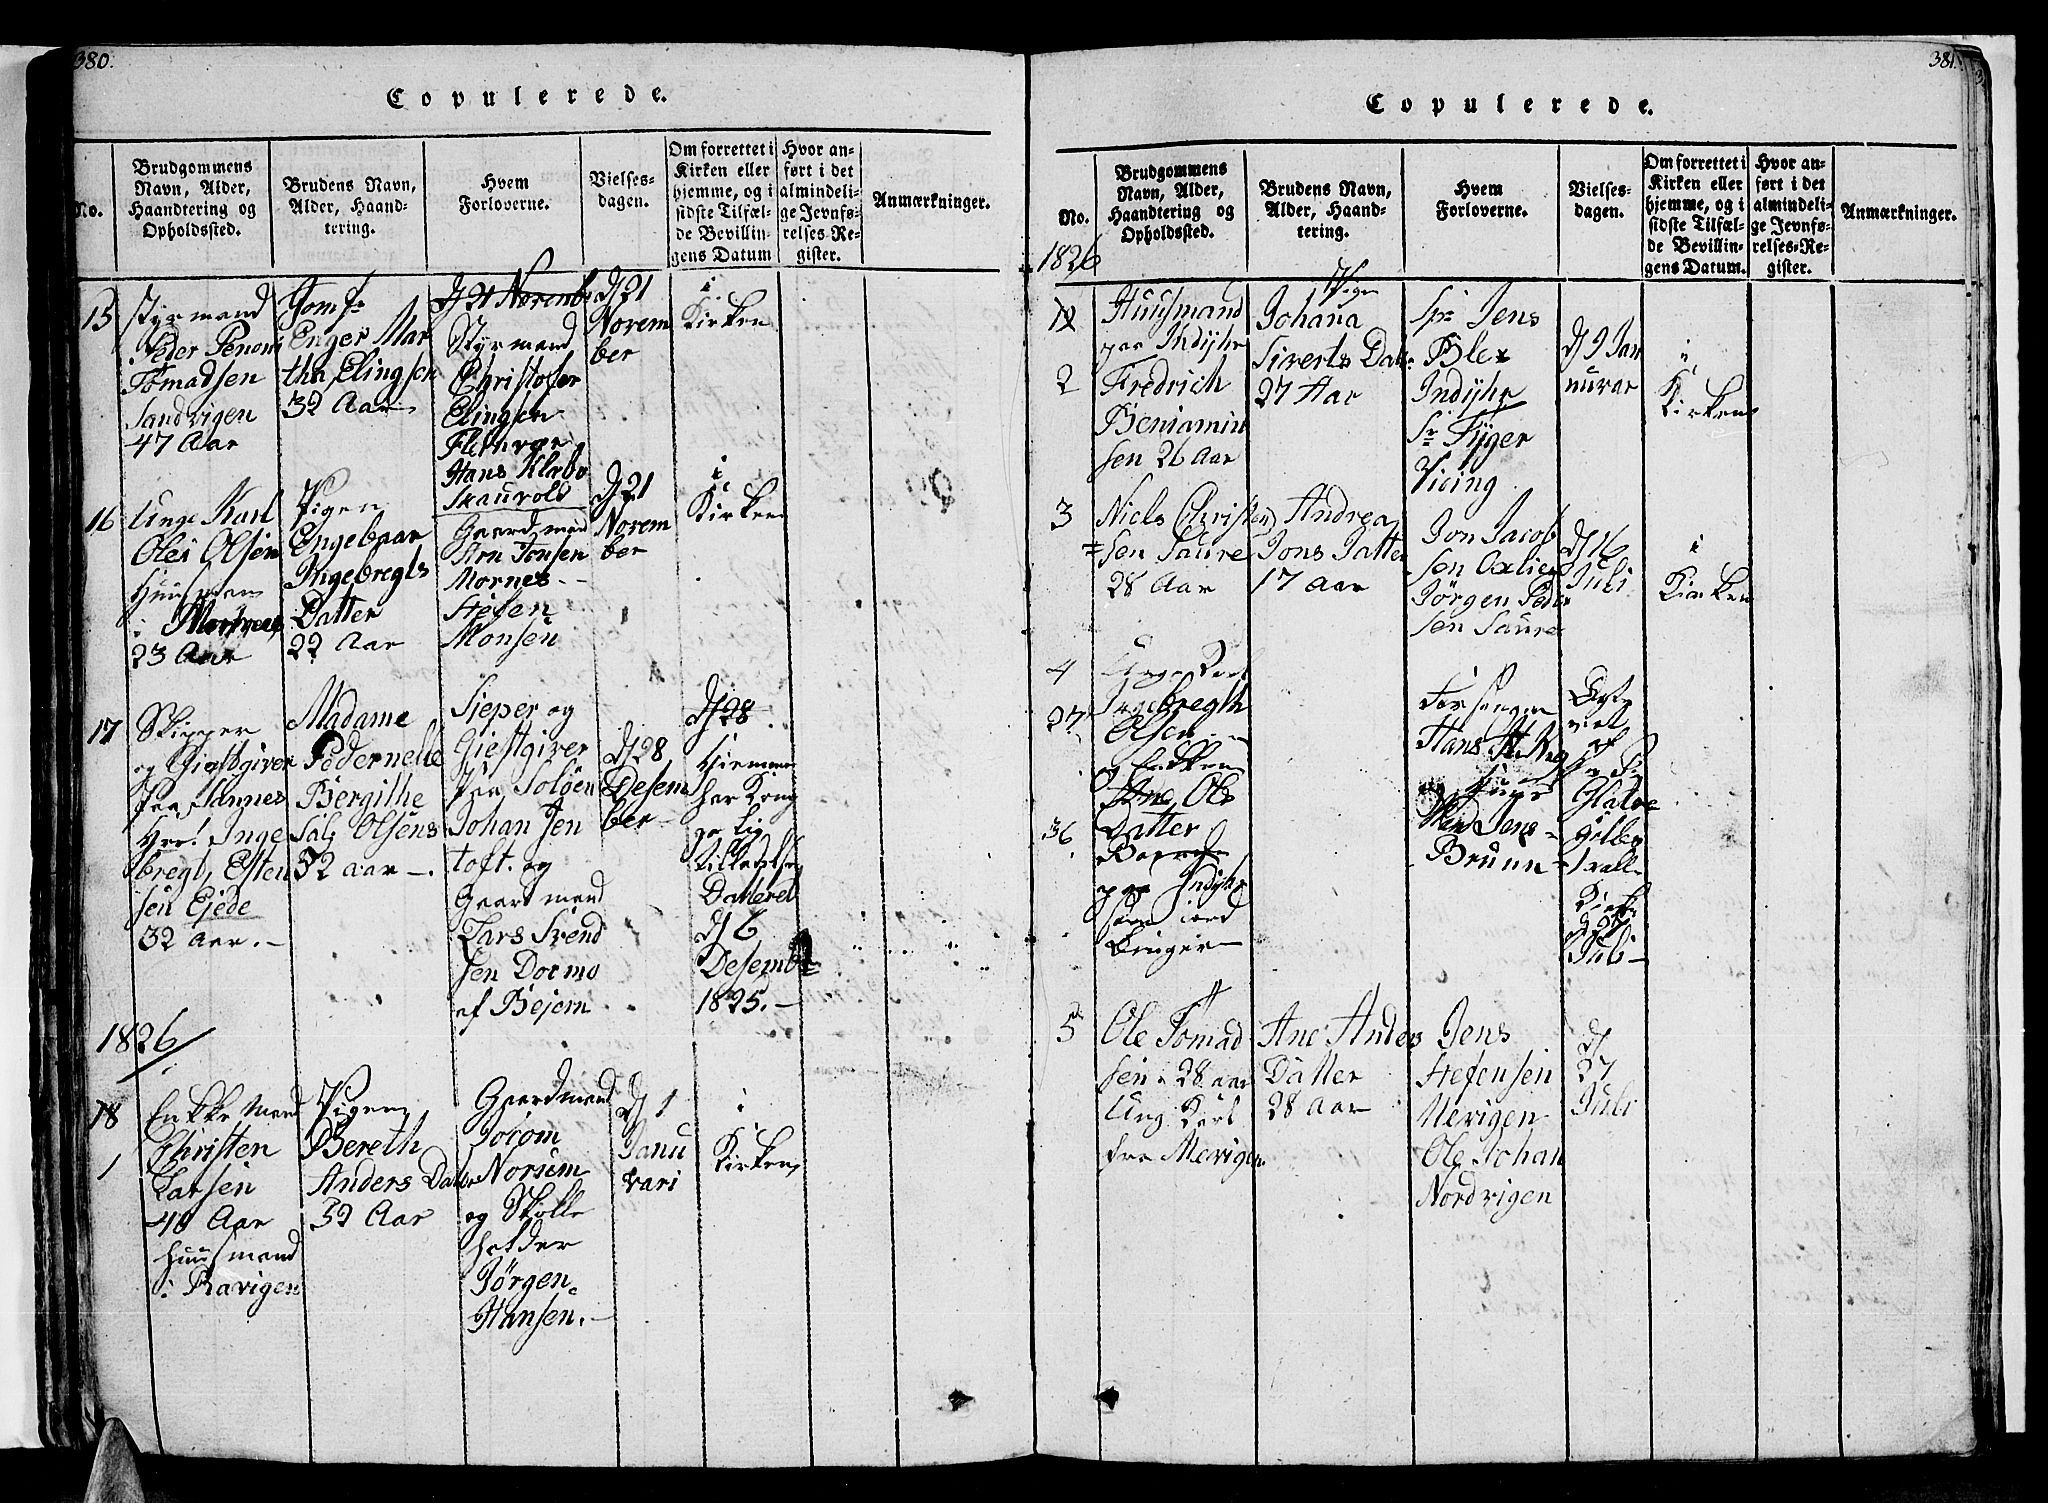 380.
Copulerede.
No.
Brudgommens
Navn, Alder,
Haandtering og
Opholdssted.
Brudens Navn,
Alder, Haand-
tering.
Hvem
Forloverne.
Vielses-
dagen.
Om forrettet i
Kirken eller
hjemme, og i
sidste Tilfæl-
de Bevillin-
gens Datum
Hvor an-
ført i det
almindeli-
ge Jevnfø-
relses-Re-
gister.
Anmærkninger.
15
Styrmand
Peder
Tomadsen
Sandvigen
47 Aar
Jomfr
Enger Mar
tha Elingsen
32 Aar
Styrmand
Christofer
Elingsen
Hans Klæbo
d 21
Novem
ber
i
Kirken
16
Unge Karl
Olei Olsen
Huusman
i
23 Aar
Pigen
Engebaar
Ingebregts
Datter
22 Aar
Gaardman
Arn Jonsen
Mornes
Stefen
Monsen
d 21
Novem
ber
i
Kirken
17
Skipper
og Giestgiver
Paa Sannes
Hrr! Inge
bregt Esten
sen Ejede
32 aar.
Madame
Pedernelle
Bergithe
Olsens
32 aar
Sieper og
Giestgiver
Paa Soløen
Johan Jen
toft. og
Gaardmand
Lars Svend
sen Dormo
af Bejern
d 28
Desem
ber
d 28
Hiemme
har Kong
ge lig
Datteret
d 6
Desember
1825.
1826
18
1
Enkke Mand
Christen
Larsen
40 Aar
Huusmand
i Ravigen
Pigen
Bereth
Anders Datter
32 Aar
Gaardmand
Jocom
Norum
og Skolle
holder
Jørgen
Hansen.
d 1
Janu
vari
i
Kirken
381.
Copulerede.
No.
Brudgommens
Navn, Alder,
Haandtering og
Opholdssted.
Brudens Navn,
Alder, Haand-
tering.
Hvem
Forloverne.
Vielses-
dagen.
Om forrettet i
Kirken eller
hjemme, og i
sidste Tilfæl-
de Bevillin-
gens Datum.
Hvor an-
ført i det
almindeli-
ge Jevnfø-
relses-Re-
gister.
Anmærkninger.
1826
2
Huusmand
paa Indyhr
Fredrich
Beniamin
sen 26 Aar
Pigen
Johana
Siverts Datter
27 Aar
Sr Jens
Blex
Indyhr
Sr Fyger
Vicing
d 9 Jan
nuvar
i
Kirken
3
Niels Christen
sen Saure
28 Aar
Andrea
Jons Datter
17 aar
Jon Jacob
sen Oxlien
Jörgen Peder
sen Saure
d 16
Juli
i
Kirken
4
27
36
Unge Karl
Ingebregth
Olsen
og Enkken
Ane Ols
Datter
paa Indyhr
Forsanger
Hans
Jens
Brunn
af
Gilles
kaall
Kirke
d 27
Juli
5
Ole Tomad
sen 28 aar
Ung Karl
fra Mevigen
Ane Anders
Datter
28 Aar
Jens
Stefensen
Mevigen
Ole Johan
Nordvigen
d
27
Juli